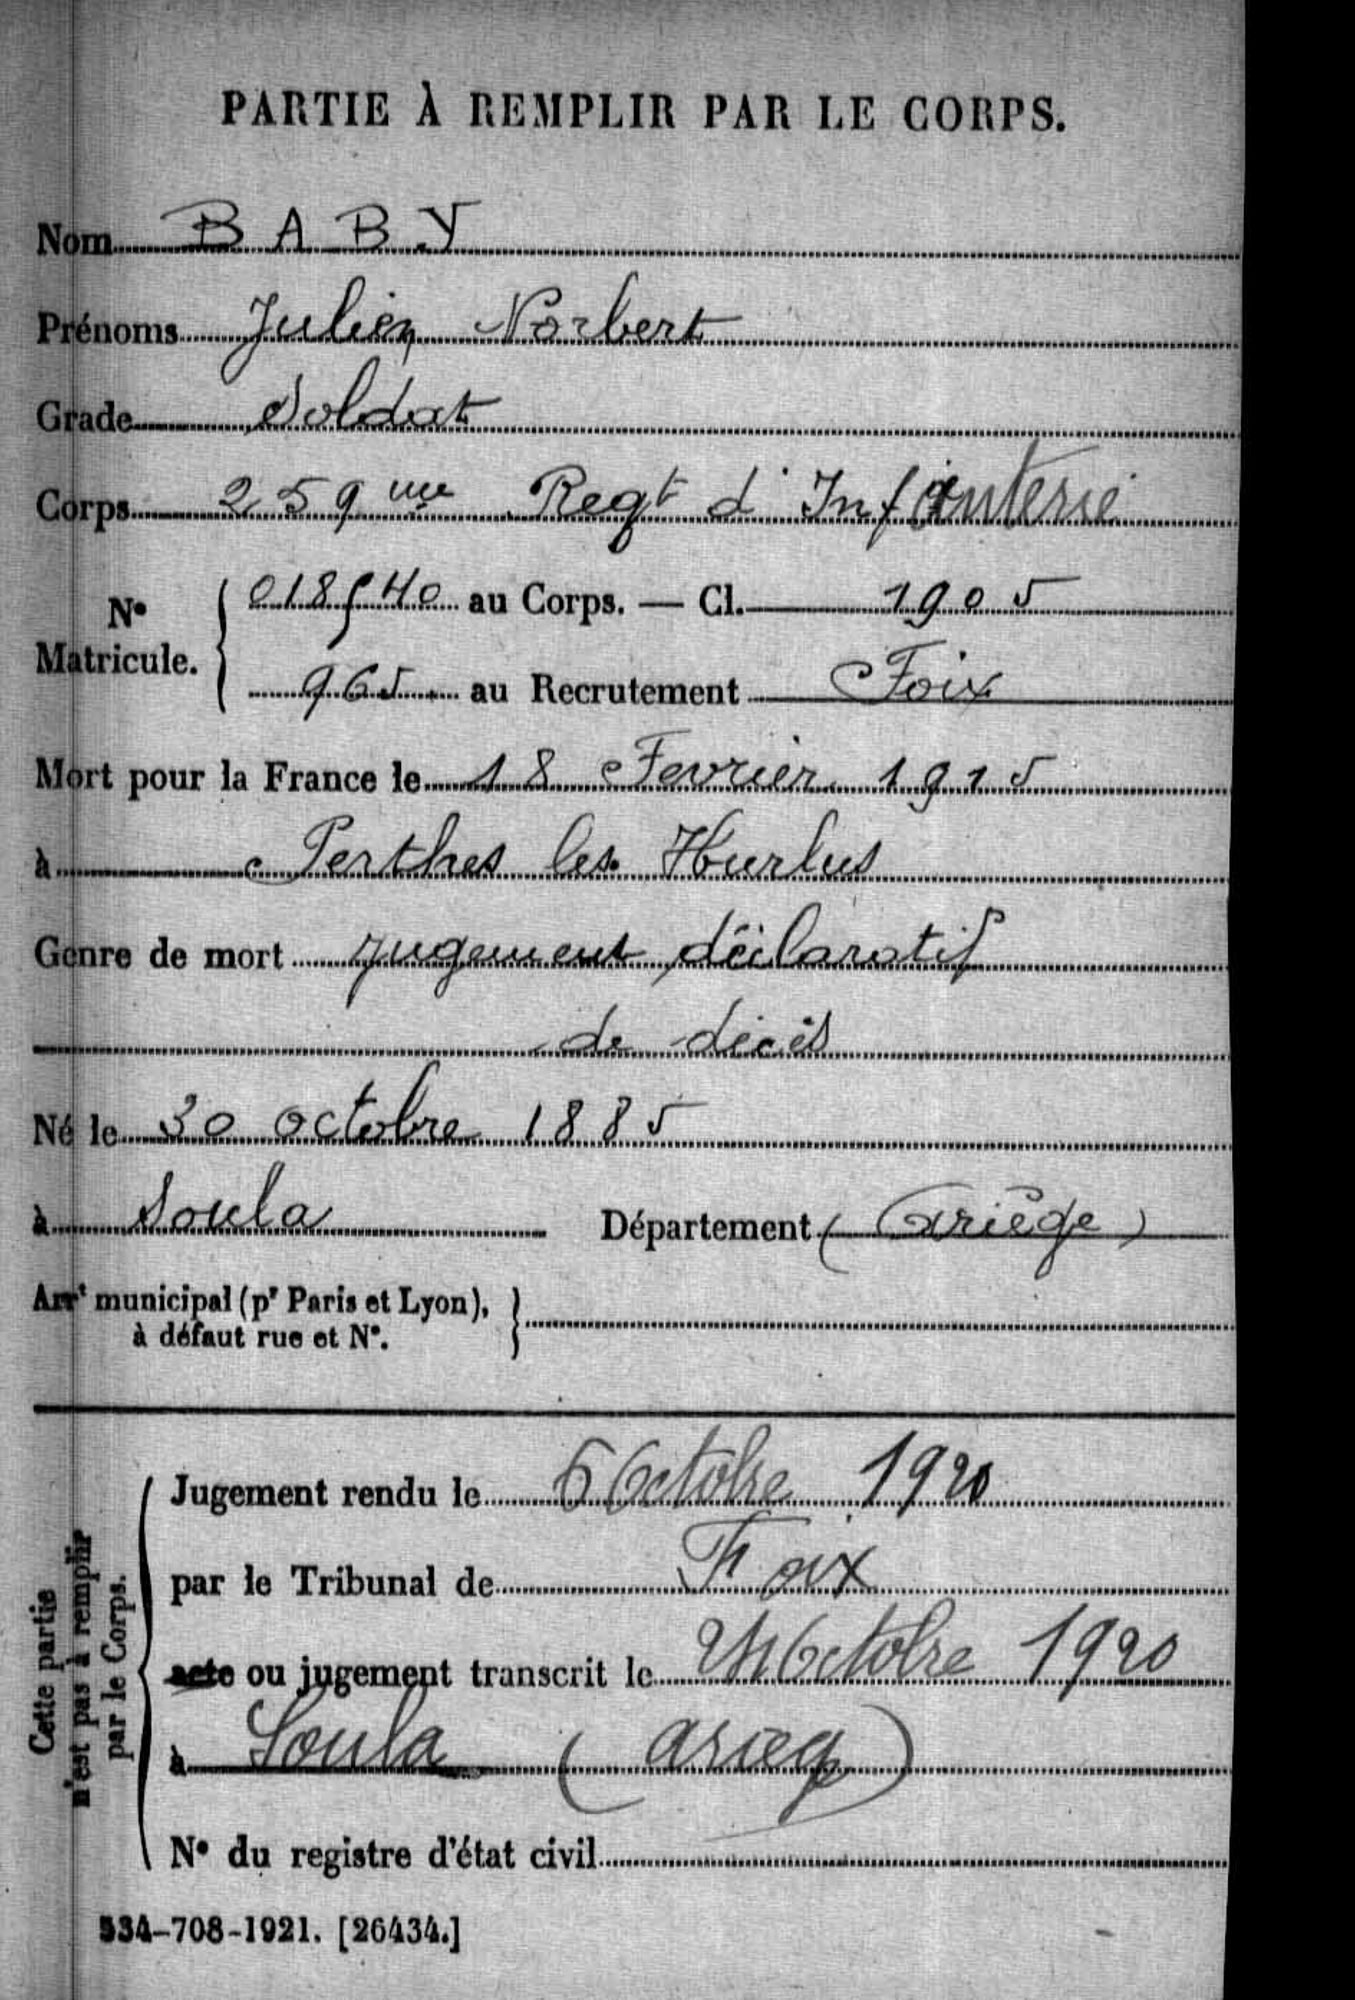 PARTIE À REMPLIR PAR LE CORPS.
Nom BABY
Prénoms Julien Norbert
Grade Soldat
Corps 259me Regt d'Infanterie
No Matricule. { 018540 au Corps. — Cl. 1905
965 au Recrutement Foix
Mort pour la France le 18 Fevrier 1915
à Perthes les Hurlus
Genre de mort jugement déclaratif
de décès
Né le 30 octobre 1885
à Soula Département (Ariège)
Arrt municipal (pr Paris et Lyon), }
à défaut rue et No.
Cette partie
n'est pas à remplir
par le Corps.
Jugement rendu le 6 Octobre 1920
par le Tribunal de Foix
acte ou jugement transcrit le Octobre 1920
à Soula (Arieg)
No du registre d'état civil
534-708-1921. [26434.]